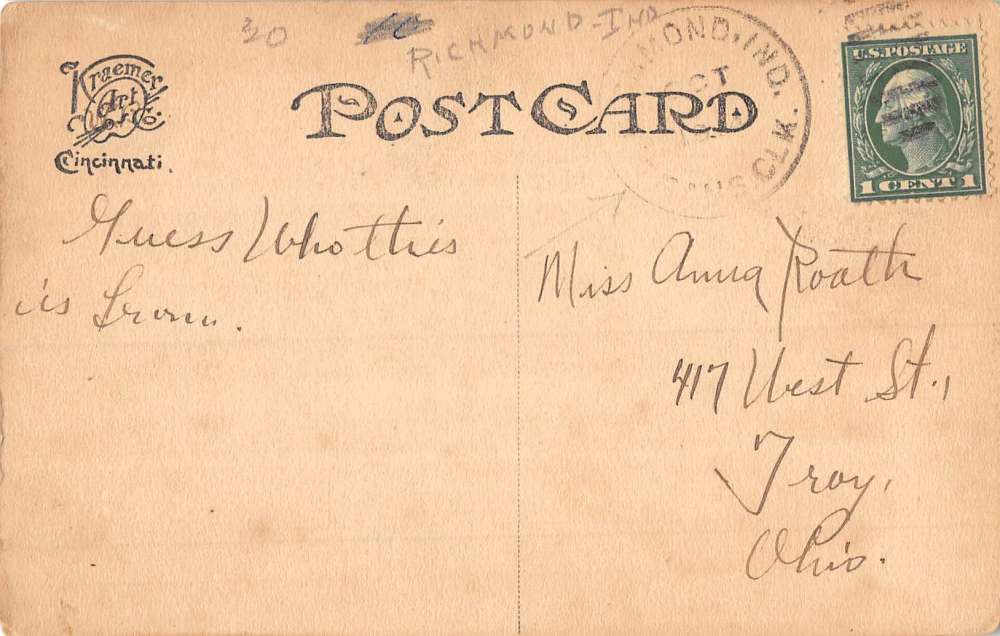 30
RICHMOND-IND
MOND, IND.
OCT
CLK.
Kraemer
Art
Co.
Cincinnati.
POST CARD
U.S. POSTAGE
1 CENT 1
Guess Who this
is from.
Miss Anna Roath
417 West St.,
Troy,
Ohio.